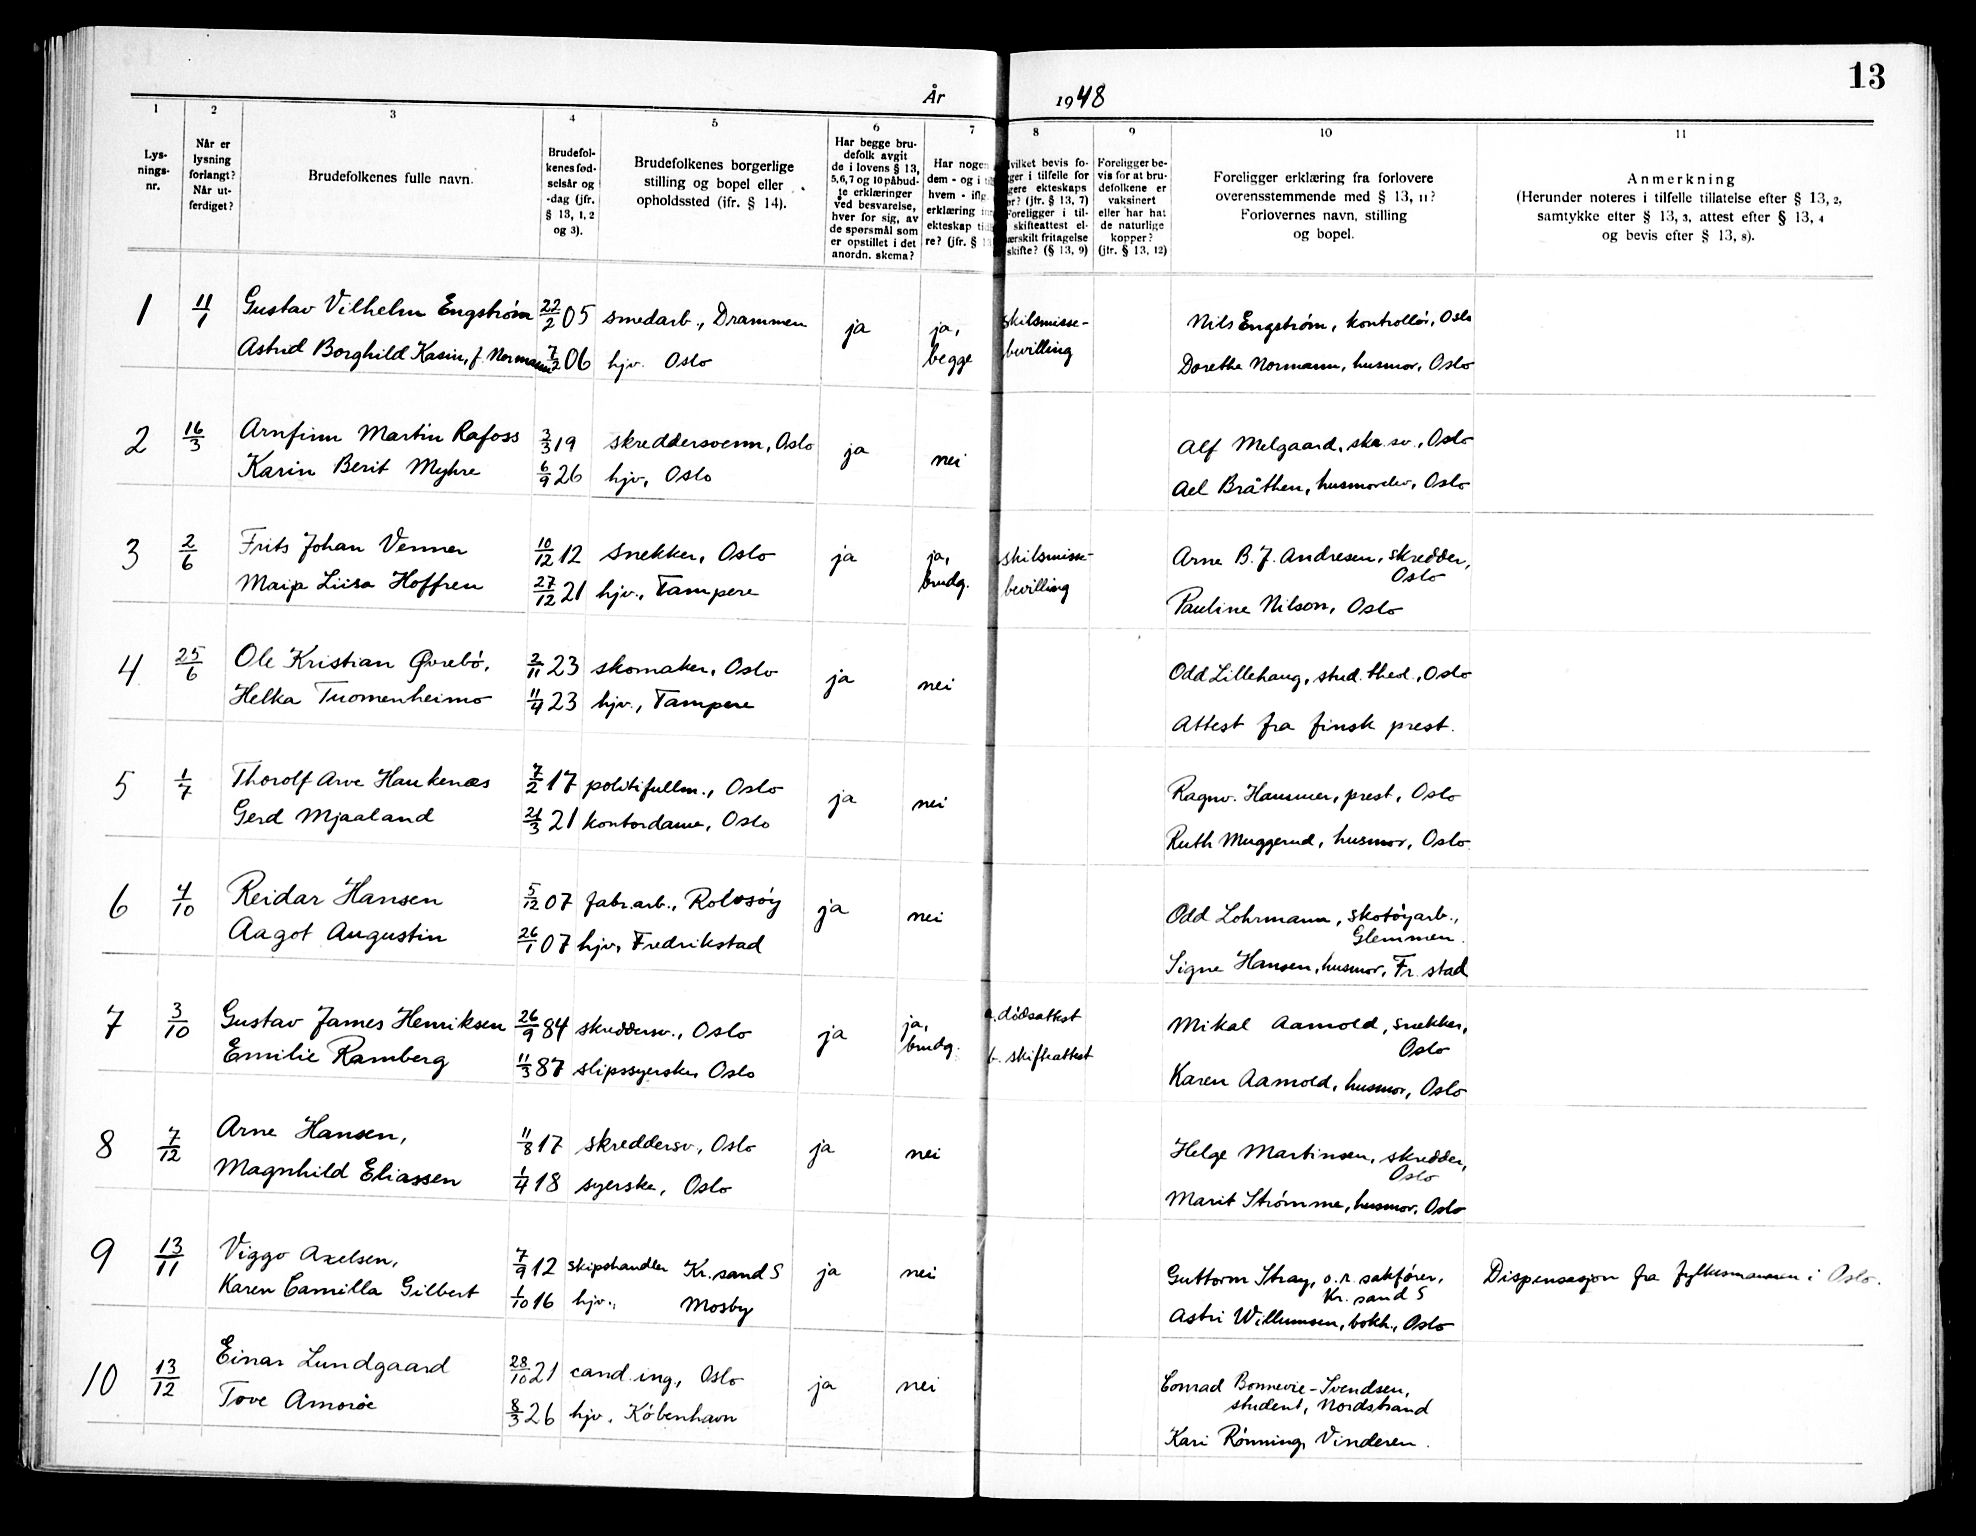 13
År 1948
1 2 3 4 5 6 7 8 9 10 11
Lys-
nings-
nr.
Når er
lysning
forlangt?
Når ut-
ferdiget?
Brudefolkenes fulle navn.
Brudefol-
kenes fød-
selsår og
-dag (jfr.
§ 13, 1, 2
og 3).
Brudefolkenes borgerlige
stilling og bopel eller
opholdssted (ifr. § 14).
Har begge bru-
defolk avgit
de i lovens § 13,
5, 6, 7 og 10 påbud-
te erklæringer
ved besvarelse,
hver for sig, av
de spørsmål som
er opstillet i det
anordn. skema?
Har nogen
dem - og i
hvem - iflg.
erklæring
ekteskap
re? (jfr. §
vilket bevis fo-
ger i tilfelle for
gere ekteskaps
er? (jfr. § 13, 7)
Foreligger i til-
skifteattest el-
ærskilt fritagelse
skifte? (§ 13, 9)
Foreligger be-
vis for at bru-
defolkene er
vaksinert
eller har hat
de naturlige
kopper?
(jfr. § 13, 12)
Foreligger erklæring fra forlovere
overensstemmende med § 13, 11?
Forlovernes navn, stilling
og bopel.
Anmerkning
(Herunder noteres i tilfelle tillatelse efter § 13, 2,
samtykke efter § 13, 3, attest efter § 13, 4
og bevis efter § 13, 8).
1 11/1 Gustav Vilhelm Engstrøm 22/2 05 smedarb., Drammen ja ja, skilsmisse- Nils Engstrøm, kontrollør, Oslo
Astrid Borghild Kasin, f. Normann 7/2 06 hjv. Oslo begge bevilling Dorethe Normann, husmor, Oslo
2 16/3 Arnfinn Martin Rafoss 3/3 19 skreddersvenn, Oslo ja nei Alf Melgaard, skr. sv., Oslo
Karin Berit Myhre 6/9 26 hjv, Oslo Bråthen, husmorelev, Oslo
3 2/6 Frits Johan Venner 10/12 12 snekker, Oslo ja ja, skilsmisse- Arne B. J. Andresen, skredder,
Oslo
Maija Liisa Hoffren 27/12 21 hjv., Tampere brudg. bevilling Pauline Nilson, Oslo
4 25/6 Ole Kristian Øvrebø, 2/11 23 skomaker, Oslo ja nei Odd Lillehaug, stud. theol., Oslo
Helka Tuomenheimo 11/4 23 hjv., Tampere Attest fra finsk prest.
5 1/7 Thorolf Arve Haukenæs 7/2 17 politifullm., Oslo ja nei Ragnv. Hammer, prest, Oslo
Gerd Mjaaland 21/3 21 kontordame, Oslo Ruth Muggerud, husmor, Oslo
6 4/10 Reidar Hansen 5/12 07 fabr.arb., Rolvsøy ja nei Odd Lohrmann, skotøyarb.,
Glemmen.
Aagot Augustin 26/1 07 hjv, Fredrikstad Signe Hansen, husmor, Fr. stad
7 3/10 Gustav James Henriksen 26/9 84 skreddersv., Oslo ja ja, a. dødsattest Mikal Aamold, snekker,
Oslo
Emilie Ramberg 11/3 87 slipssyerske, Oslo brudg. b. skifteattest Karen Aamold, husmor, Oslo
8 7/12 Arne Hansen, 11/8 17 skreddersv., Oslo ja nei Helge Martinsen, skredder,
Oslo
Magnhild Eliassen 1/4 18 syerske, Oslo Marit Strømme, husmor, Oslo
9 13/11 Viggo Axelsen, 7/9 12 skipshandler Kr.sand S ja nei Guttorm Stray, o.r. sakfører, Dispensasjon fra fylkesmannen i Oslo.
Kr. sand S
Karen Camilla Gilbert 1/10 16 hjv., Mosby Astri Willumsen, bokh., Oslo
10 13/12 Einar Lundgaard 28/10 21 cand. ing., Oslo ja nei Conrad Bonnevie-Svendsen,
student, Nordstrand
Tove Amorøe 8/3 26 hjv, København Kari Rønning, Vinderen.